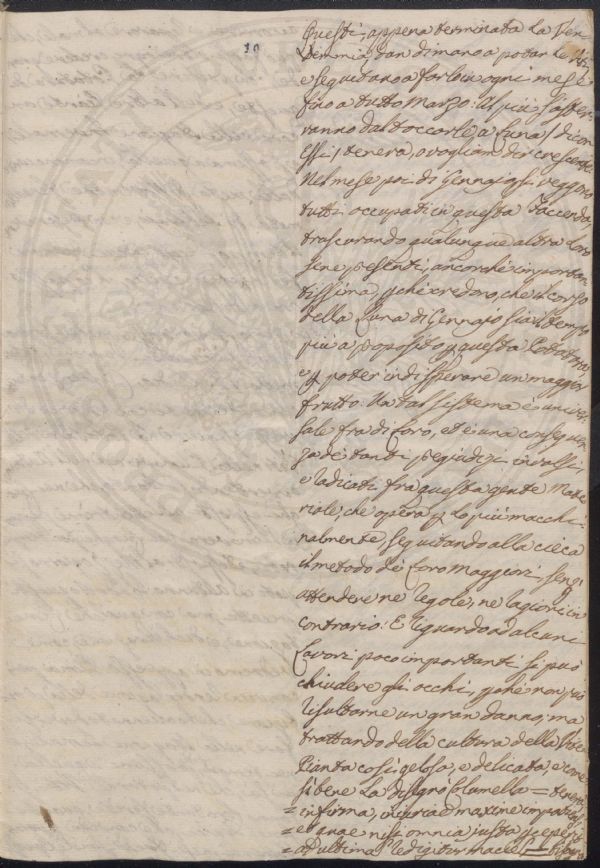 10
Questi, appena terminata la Ven
demmia, dan di mano a potar le Viti
e seguitano a farlo in ogni mese
fino a tutto Marzo: Al più s'aster
ranno dal toccarle a Luna / dicon
Essi / tenera, o vogliam dir crescente:
Nel mese poi di Gennajo si veggono
tutti occupati in questa faccenda,
trascurando qualunque altra loro
fine presenti, ancorchè importan
tissima, pchè credono, che il corso
della Luna di Gennajo sia il tempo
più a proposito p questa Potatura,
e p poter indi sperare un maggior
frutto. Un tal sistema è univer
sale fra di Loro, et è una conseguen
za de tanti pregiudizj invalsi,
e radicati fra questa gente Mate
riale, che opera p lo più macchi
nalmente, seguitando alla cieca
il metodo de Loro Maggiori, senz'
attendere nè regole, nè ragioni in
contrario: E riguardo ad alcuni
Lavori poco importanti si può
chiudere gli occhi, pchè non può
risultarne un gran danno, ma
trattando della cultura della Vite
Pianta così gelosa, e delicata, e come
sì bene la disegnò Columella = tenera,
= infirma, injuriæ maxime impatiens
= et quae nisi omnia justa
= ad ultimam redigitur maciem